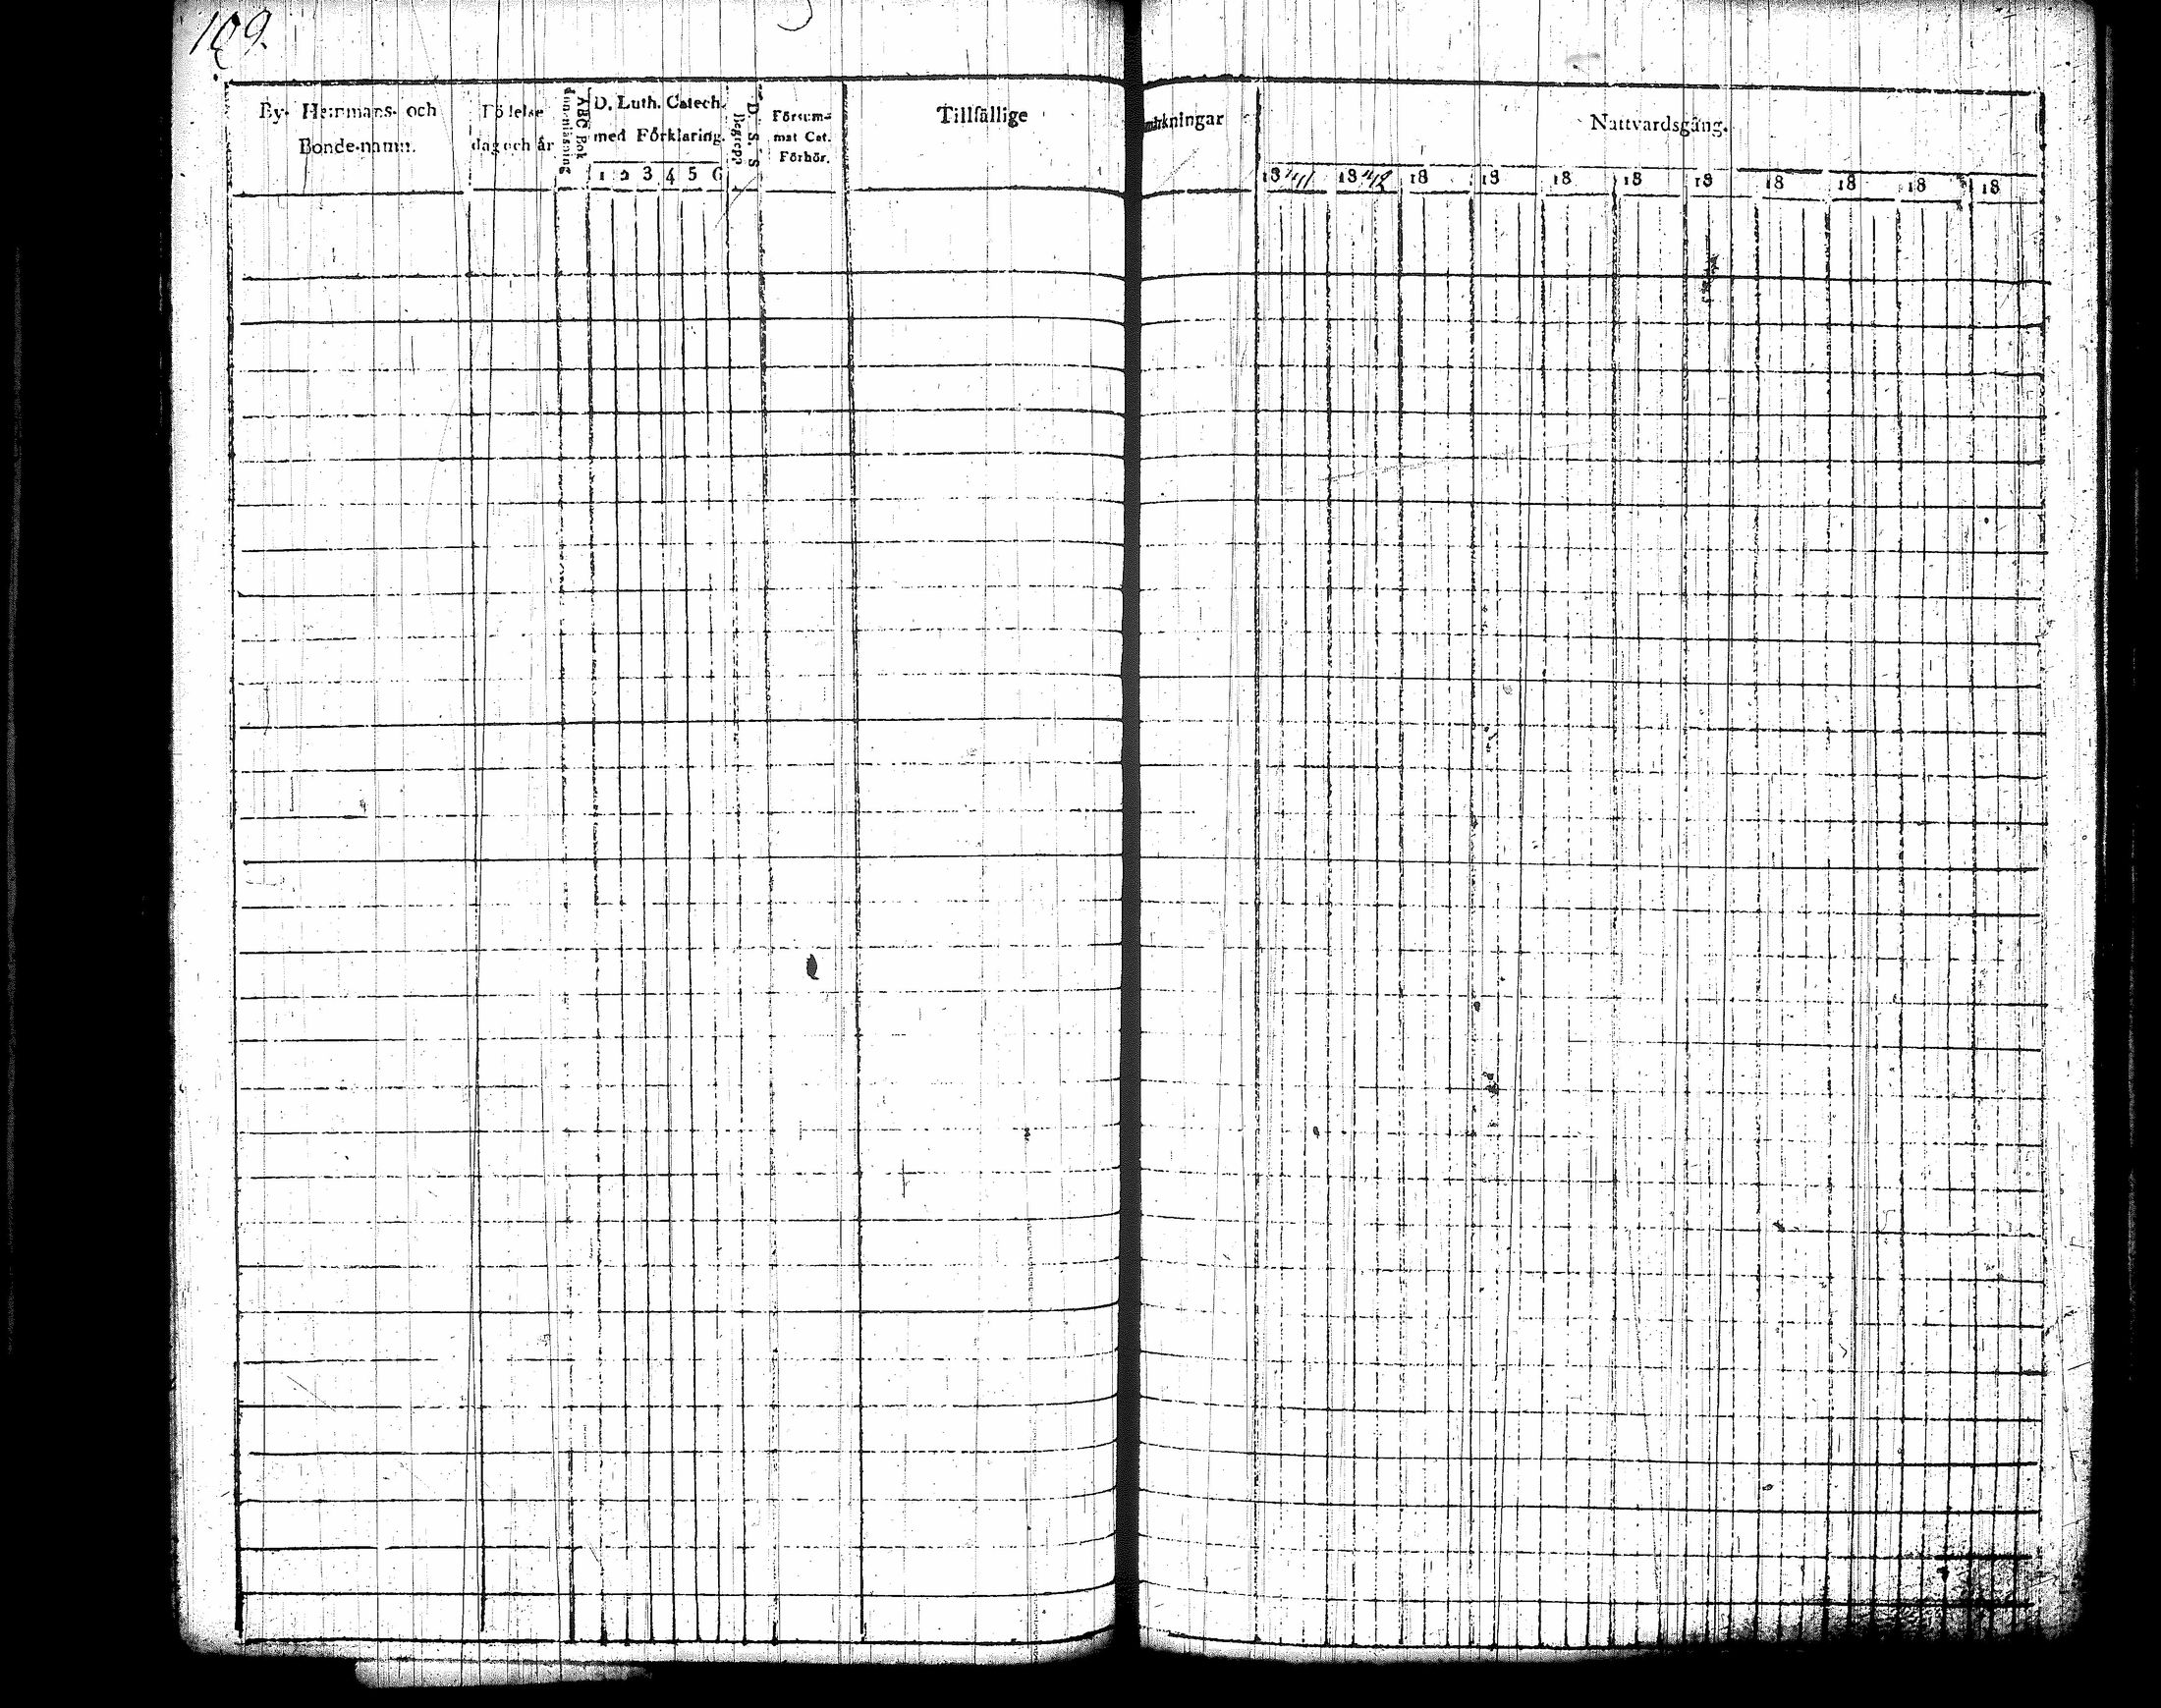 109.
By- Hemmans- och
Bonde-namn.
Födelse
dag och år
ABC Bok
D. Luth. Catech.
med Förklaring.
1 2 3 4 5 6
D. S. S.
Begrepp
Försum-
mat Cat.
Förhör.
Tillfällige
märkningar
Nattvardsgång.
1841 1842 18 18 18 18 18 18 18 18 18